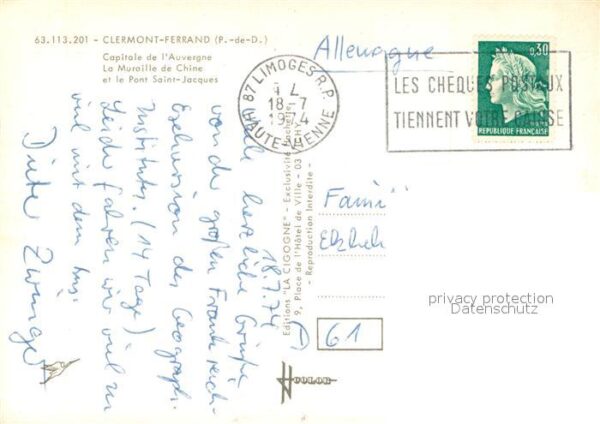 63.113.201 - CLERMONT-FERRAND (P.-de-D.)
Capitale de l'Auvergne
La Muraille de Chine
et le Pont Saint-Jacques
Allemagne
87 LIMOGES R.P.
18-7
1974
HAUTE-VIENNE
LES CHEQUES POSTAUX
TIENNENT VOTRE CAISSE
0,30
REPUBLIQUE FRANÇAISE
18.7.74
herzliche Grüße
von der großen Frankreich-
Exkursion des Geograph.
Instituts. (14 Tage)
Leider fahren wir viel zu
viel mit dem Bus.
Dieter
Editions "LA CIGOGNE" - Exclusivité Hachette
9, Place de l'Hôtel de Ville - 03 VICHY
- Reproduction Interdite -
Famil
61
privacy protection
Datenschutz